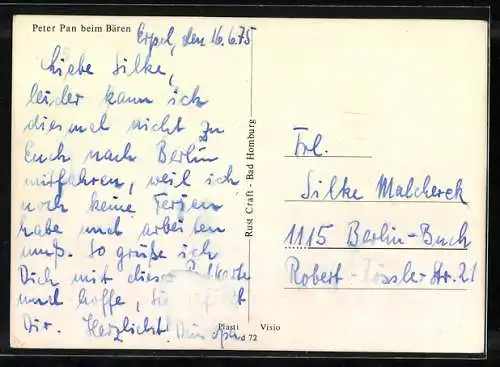 Peter Pan beim Bären
Erpel, den 16.6.75
Liebe Silke,
leider kann ich
diesmal nicht zu
Euch nach Berlin
mitfahren, weil ich
noch keine Ferien
habe und arbeiten
muß. So grüße ich
Dich mit dieser
und hoffe, sie gefällt
Dir. Herzlichst Dein Opa
Rust Craft - Bad Homburg
Frl.
Silke Malchereck
1115 Berlin-Buch
Robert-Rössler-Str. 21
Plasti Visio
d 72